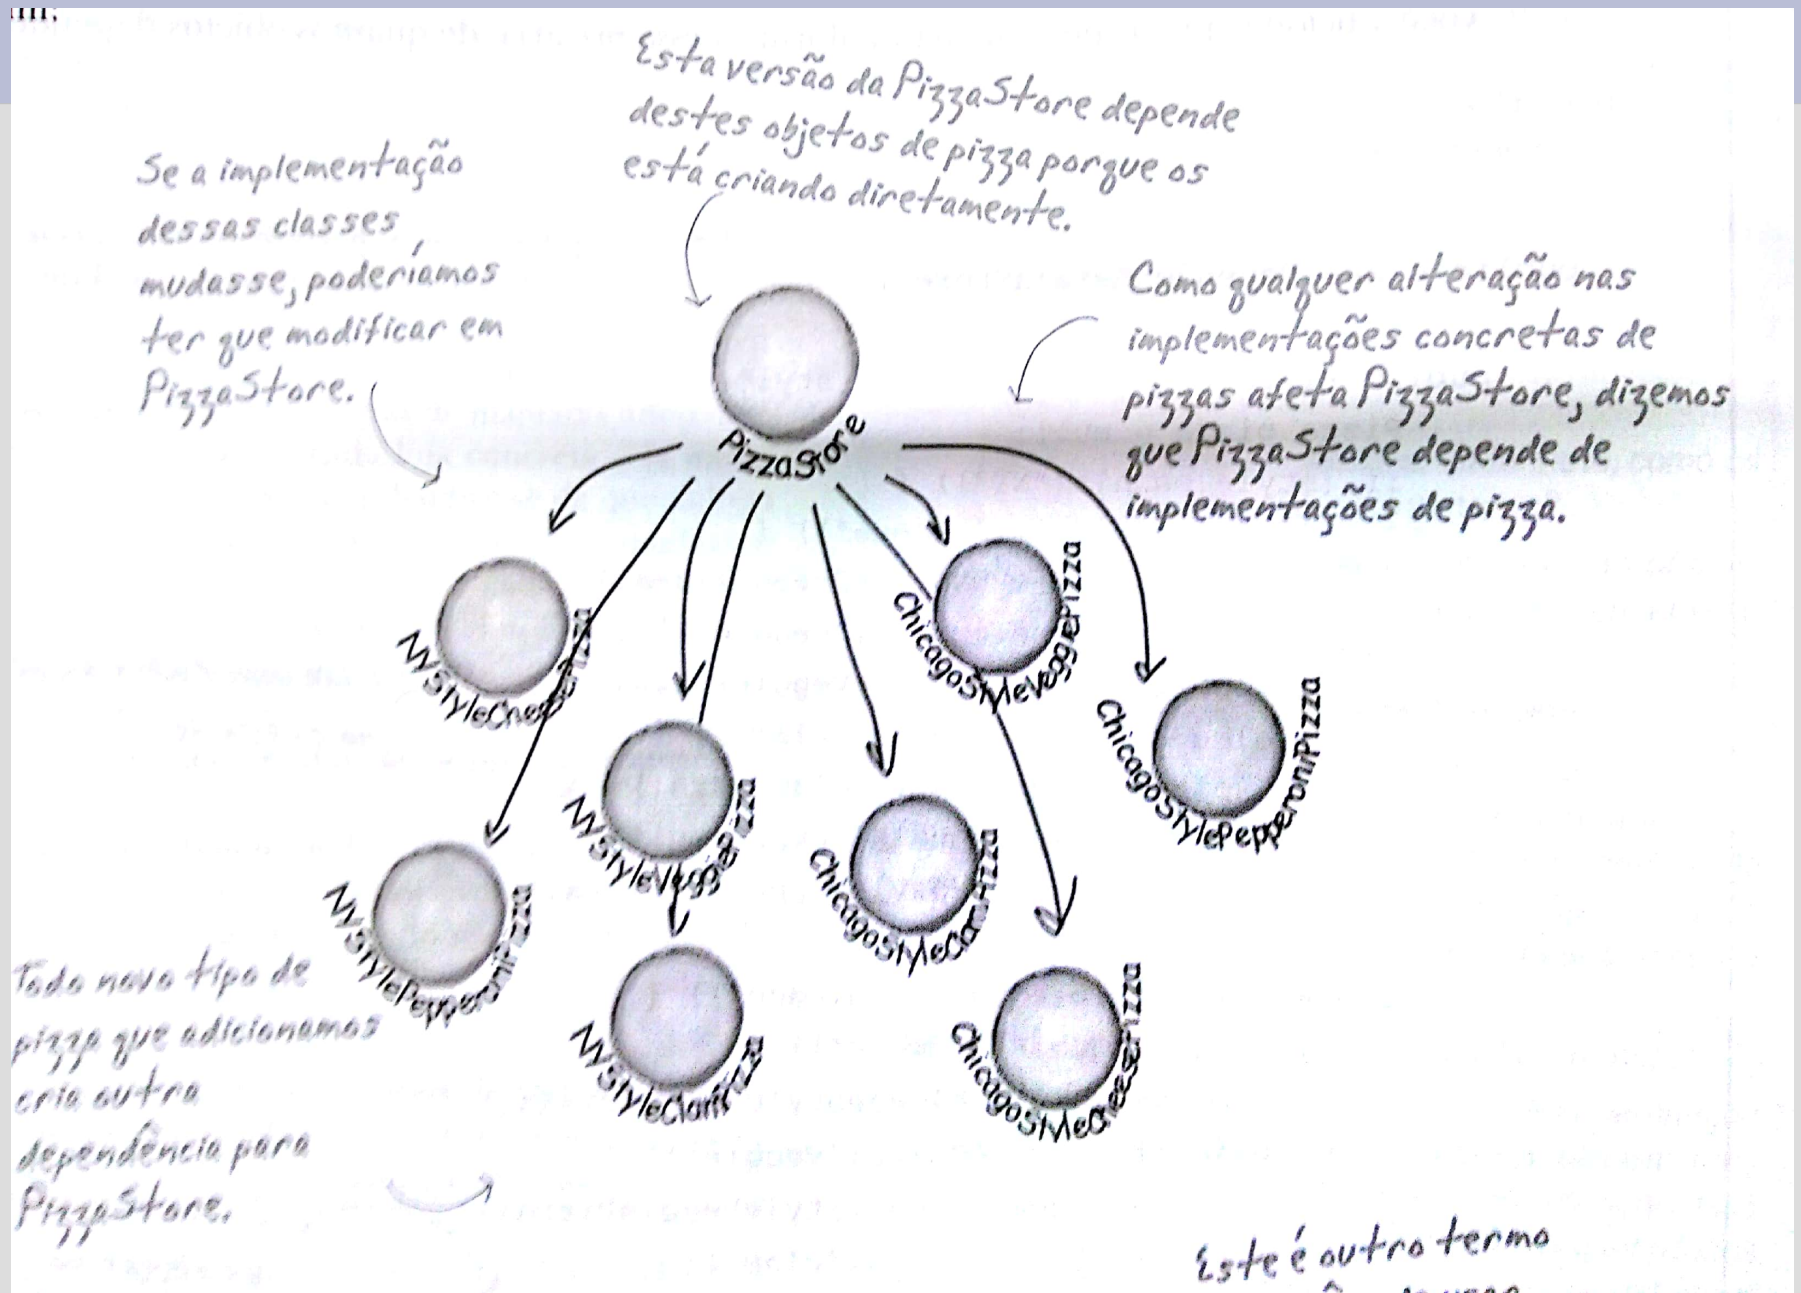 Esta versão da PizzaStore depende
destes objetos de pizza porque os
está criando diretamente.
Se a implementação
dessas classes
mudasse, poderíamos
ter que modificar em
PizzaStore.
Como qualquer alteração nas
implementações concretas de
pizzas afeta PizzaStore, dizemos
que PizzaStore depende de
implementações de pizza.
PizzaStore
NYStyleCheesePizza
ChicagoStyleVeggiePizza
ChicagoStylePepperoniPizza
NYStyleVeggiePizza
ChicagoStyleClamPizza
NYStylePepperoniPizza
NYStyleClamPizza
ChicagoStyleCheesePizza
Todo novo tipo de
pizza que adicionamos
cria outra
dependência para
PizzaStore.
Este é outro termo